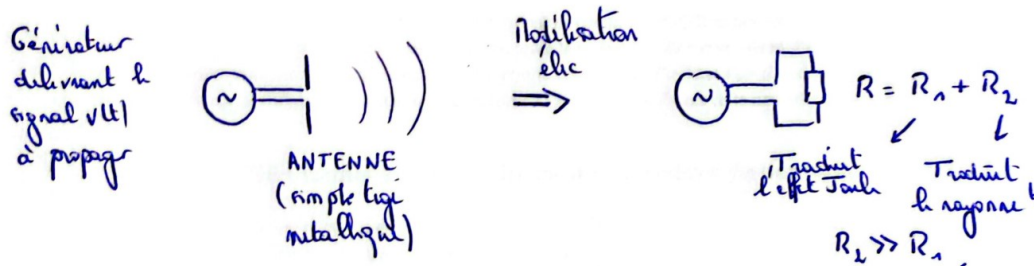 Générateur
délivrant le
signal v(t)
à propager
~
ANTENNE
(simple tige
métallique)
Modélisation
élec
⇒
~
R = R₁ + R₂
Traduit
l'effet Joule
Traduit
le rayonne^t
R₂ >> R₁